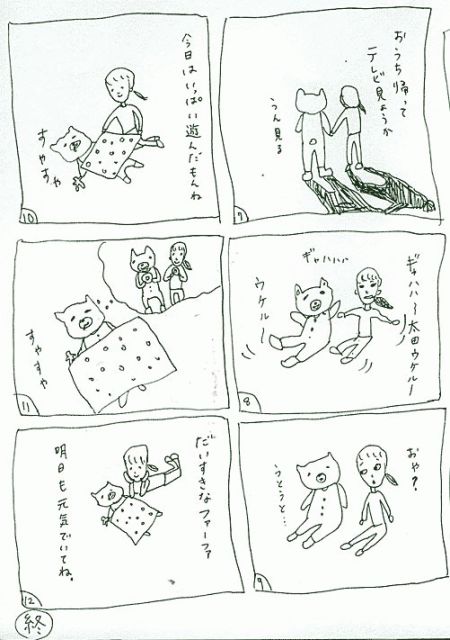 おうち帰って
テレビ見ようか
うん見る
7
ギャハハ〜太田ウケルー
ギャハハハ
ウケルー
8
おや？
うとうと…
9
今日はいっぱい遊んだもんね
すやすや
10
すやすや
11
だいすきなファーファ
明日も元気でいてね。
12
終